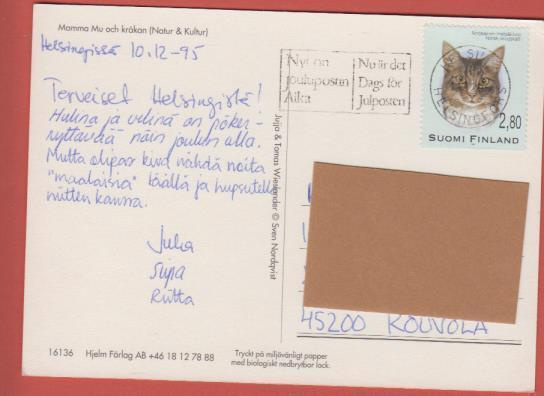 Mamma Mu och kråkan (Natur & Kultur)
Helsingissä 10.12-95
Terveiset Helsingistä!
Hulina ja velinä on
näin joulun alla.
Mutta kiva nähdä noita
"maalaisia" täällä ja hupsutella
niitten kanssa.
Juha
Sirpa
Riitta
16136 Hjelm Förlag AB +46 18 12 78 88
Tryckt på miljövänligt papper
med biologiskt nedbrytbar lack.
Jujja & Tomas Wieslander © Sven Nordqvist
Nyt on
Joulupostin
Aika
Nu är det
Dags för
Julposten
HELSINGFORS
2,80
SUOMI FINLAND
45200 KOUVOLA